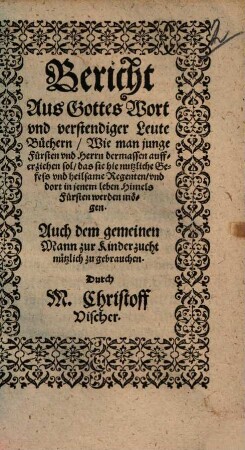 Bericht
Aus Gottes Wort
vnd verstendiger Leute
Büchern / Wie man junge
Fürsten vnd Herrn dermassen auff-
erziehen sol / das sie hie nutzliche Ge-
fess vnd heilsame Regenten / vnd
dort in jenem leben Himels
Fürsten werden mö-
gen.
Auch dem gemeinen
Mann zur Kinderzucht
nützlich zu gebrauchen.
Durch
M. Christoff
Vischer.